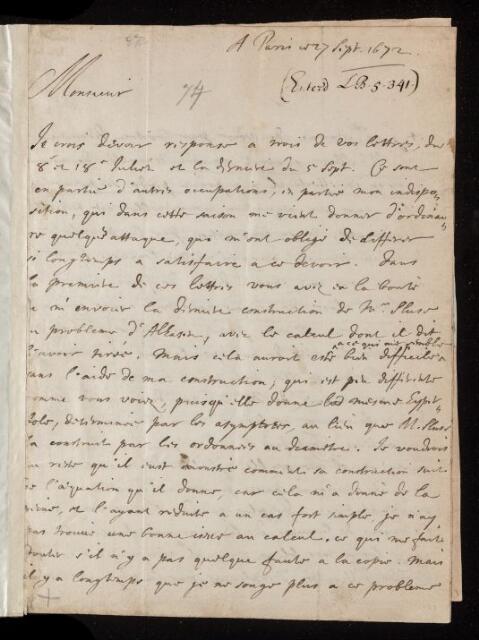 A Paris ce 27 Sept. 1672.
(Enterd LB. 5. 341.)
Monsieur
74
Je crois devoir response a trois de vos lettres, du
8e et 18e Juillet et la derniere du 5 Sept. Ce sont
en partie d'autres occupations, en partie mon indispo
sition, qui dans cette saison me vient donner d'ordinai
re quelque attaque, qui m'ont obligè de differer
si longtemps a satisfaire a ce devoir. Dans
la premiere de ces lettres vous avez eu la bontè
de m'envoier la derniere construction de Mr. Sluse
au probleme d'Alhasen, avec le calcul dont il dit
l'avoir tirée. Mais cela auroit estè bien difficile a ce qui me semble
sans l'aide de ma construction, qui est peu differente
comme vous voiez, puisqu'elle donne la mesme Hyper
bole, determinée par les asymptotes, au lieu que M. Sluse
la construit par les ordonnées au diametre. Je voudrois
au reste qu'il eust monstrè comment sa construction suit
de l'aequation qu'il donne, car cela m'a donnè de la
peine, et l'ayant reduite a un cas fort simple je n'ay
pas trouvè une bonne issue au calcul. ce qui me fait
douter s'il n'y a pas quelque faute a la copie. Mais
il y a longtemps que je ne songe plus a ce probleme